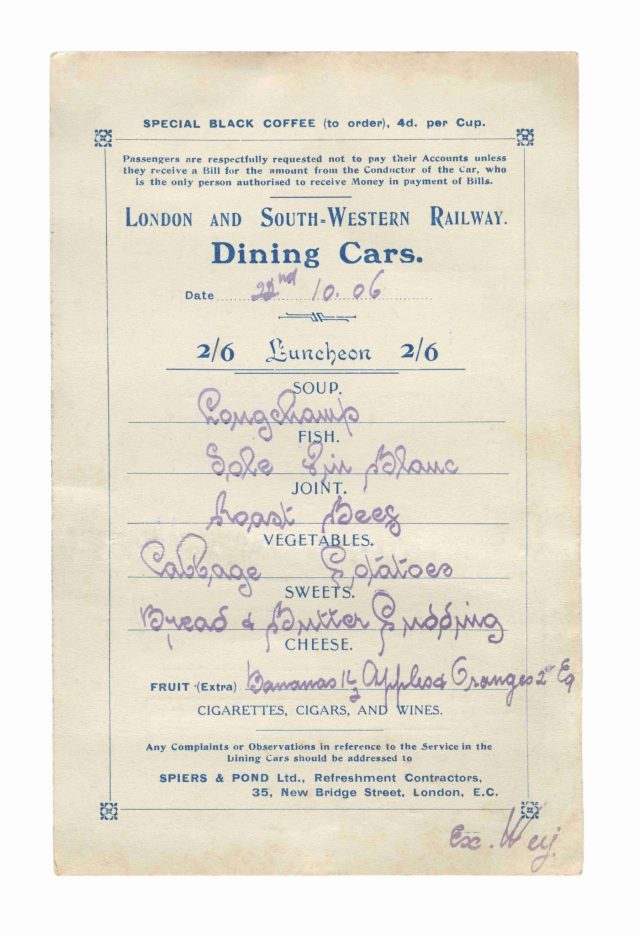 SPECIAL BLACK COFFEE (to order), 4d. per Cup.
Passengers are respectfully requested not to pay their Accounts unless
they receive a Bill for the amount from the Conductor of the Car, who
is the only person authorised to receive Money in payment of Bills.
LONDON AND SOUTH-WESTERN RAILWAY.
Dining Cars.
Date 22nd 10.06
2/6 Luncheon 2/6
SOUP.
Longchamp
FISH.
Sole Vin Blanc
JOINT.
Roast Beef
VEGETABLES.
Cabbage Potatoes
SWEETS.
Bread & Butter Pudding
CHEESE.
FRUIT (Extra) Bananas 1½ Apples & Oranges 2d Ea
CIGARETTES, CIGARS, AND WINES.
Any Complaints or Observations in reference to the Service in the
Dining Cars should be addressed to
SPIERS & POND Ltd., Refreshment Contractors,
35, New Bridge Street, London, E.C.
Ex. Wey.